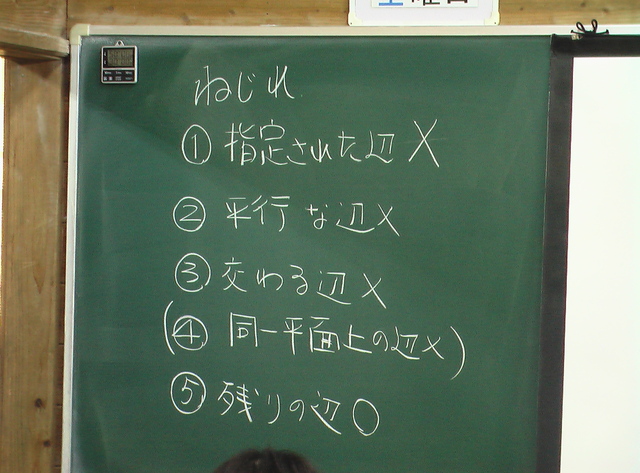 土曜日
ねじれ
① 指定された辺 X
② 平行な辺 X
③ 交わる辺 X
(④ 同一平面上の辺 X)
⑤ 残りの辺 〇